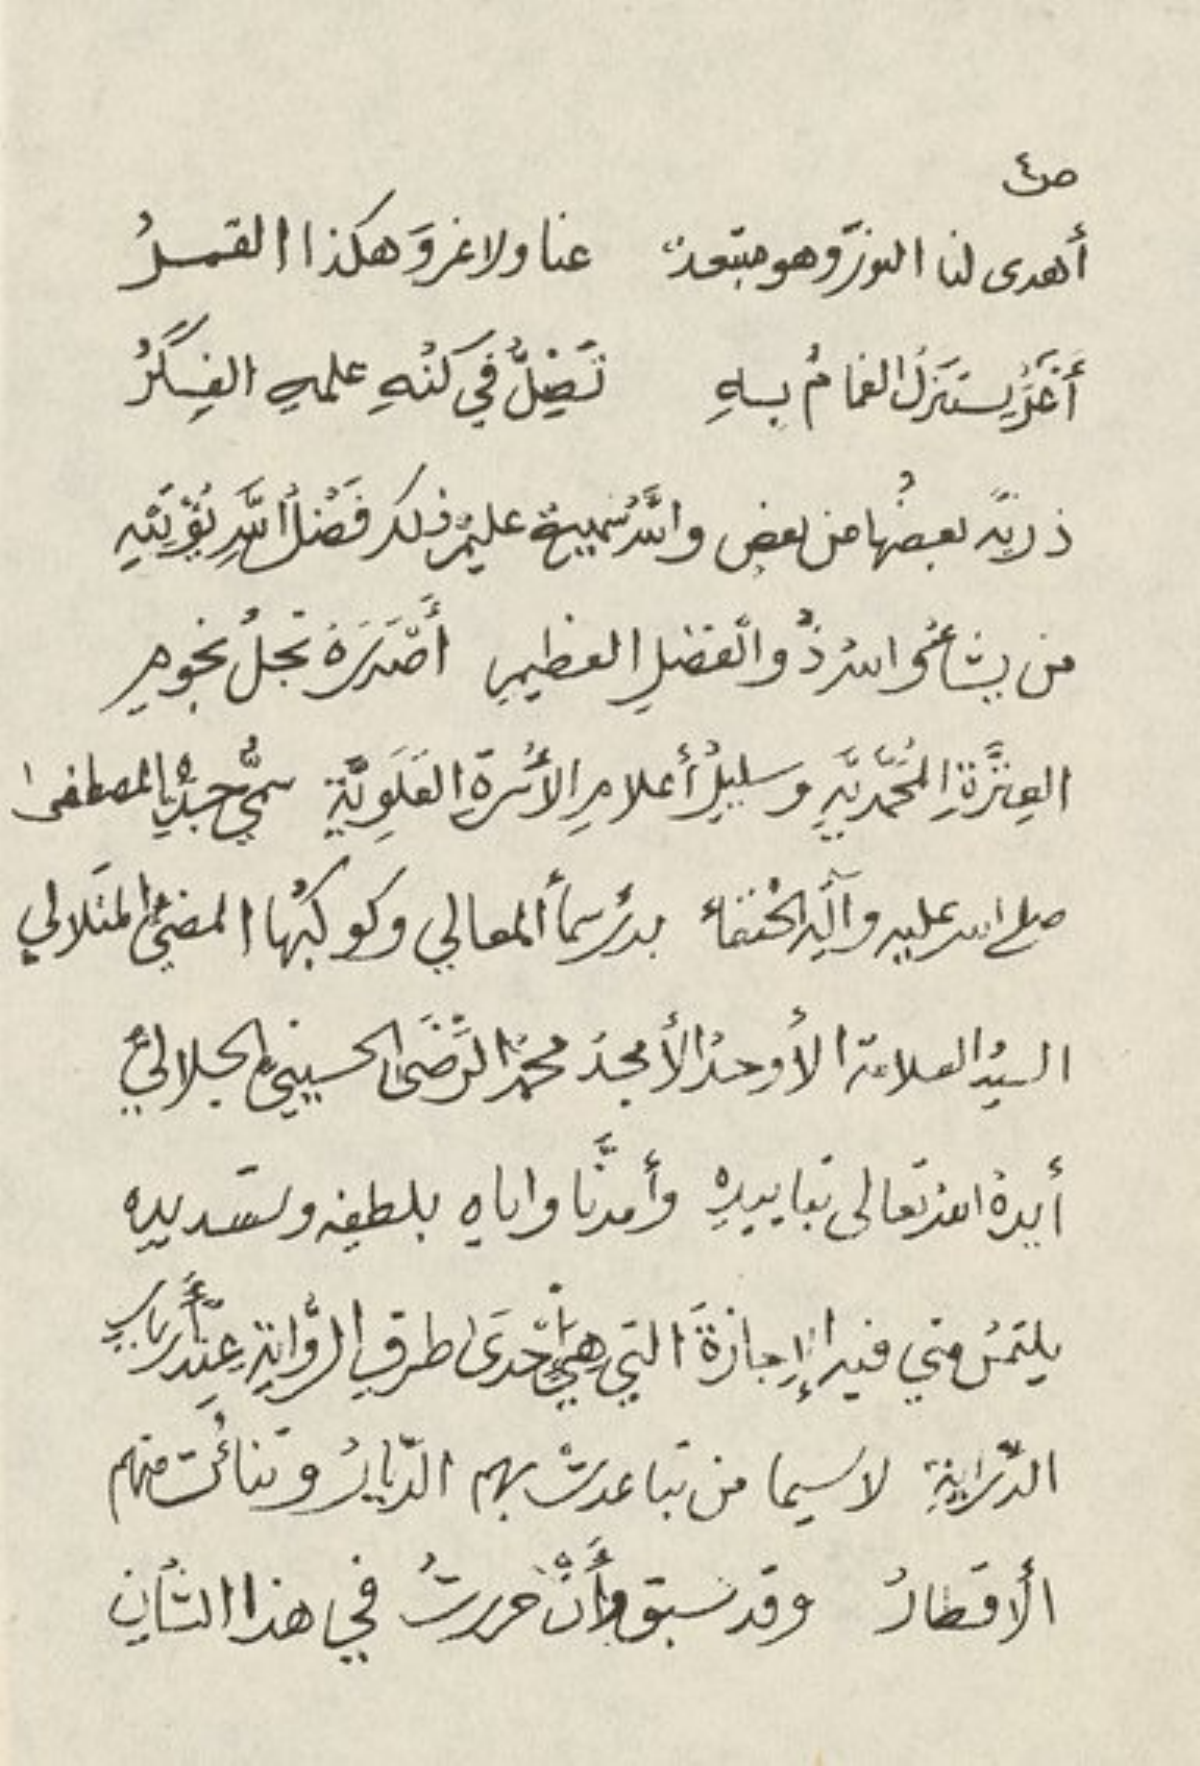 ص٤
أهدى لنا النورَ وهو مبتعدٌ عنا ولا غروَ هكذا القمرُ
أغَرُّ يستنزلُ الغمامُ بهِ تَضِلُّ في كنُهِ علمهِ الفِكَرُ
ذريّةً بعضُها من بعض واللَّهُ سميعٌ عليمٌ ذلك فَضْلُ اللَّهِ يُؤْتيَهِ
من يشاءُ واللهُ ذُو الفضلِ العظيمِ أَصْدَرَهُ نجلُ نجومِ
العِترَةِ المُحَمَّديَّهِ وسليلُ أعلامِ الأُسْرةِ العَلَويَّةِ سميُّ جدِّهِ المصطفى
صلى الله عليه وآلِهِ الحُنَفاء بدرُ سمأ المعالي وكوكبُها المضيُ المتلالي
السيدُ العلامة الأوحدُ الأمجدُ محمدُ الرِّضَى الحسينيُ الجلاليُّ
أيدهُ اللهُ تعالى بتاييدهِ وأمدَّنا واياهِ بلطفِه وتسديدِه
يلتمسُ مني فيه الإجازةَ التي هي أحدَى طرقِ الرِّوايةِ عِنْدَ أَربابِ
الدِّرايةِ لاسيما من تباعدتْ بهم الدِّيارُ وتنائت منهم
الأقطارُ وقد سبق وأَنْ حررتُ في هذا الشأنِ